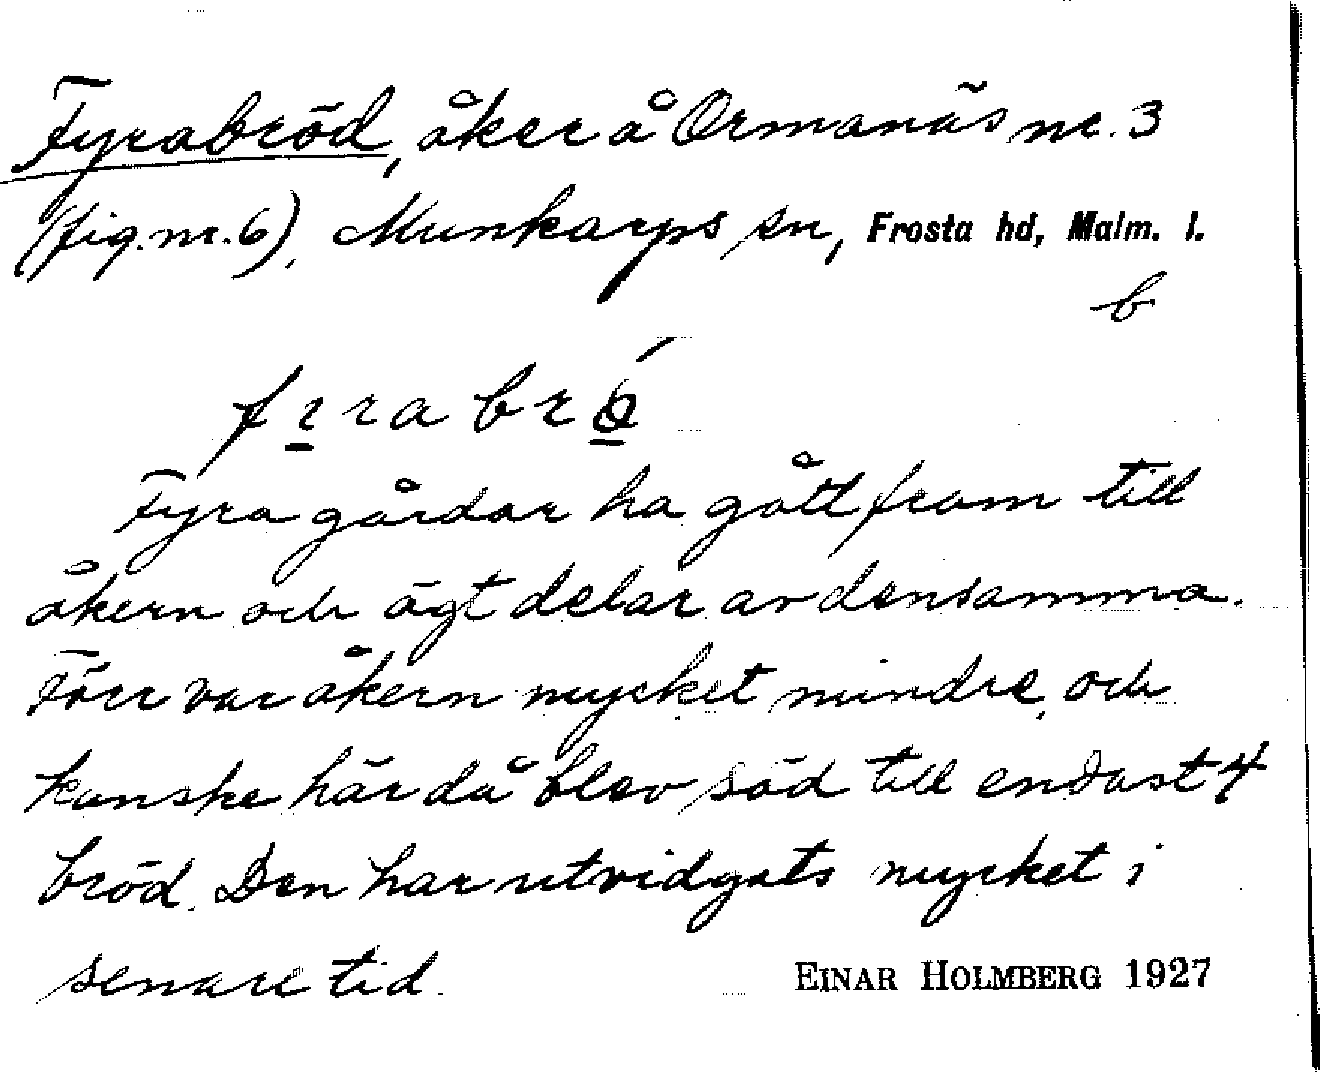 Fyrabröd, åker å Ormanäs nr. 3
(fig. nr. 6), Munkarps sn, Frosta hd, Malm. l.
b
fırabrö́
Fyra gårdar ha gått fram till
åkern och ägt delar av densamma.
Förr var åkern mycket mindre, och
kanske här då blev säd till endast 4
bröd. Den har utvidgats mycket i
senare tid.
EINAR HOLMBERG 1927